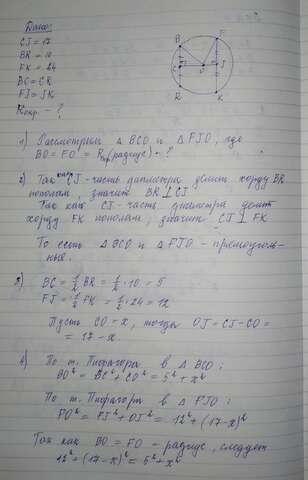 Дано:
CJ = 17
BR = 10
FK = 24
BC = CR
FJ = JK
Rокр. = ?
B
F
C
O
J
R
K
1) Рассмотрим △ BCO и △ FJO, где
BO = FO = Rокр (радиус) - ?
2) Так как CJ - часть диаметра делит хорду BR
пополам, значит BR ⊥ CJ
Так как CJ - часть диаметра делит
хорду FK пополам, значит CJ ⊥ FK
То есть △ BCO и △ FJO - прямоуголь-
ные.
3) BC = 1/2 BR = 1/2 · 10 = 5
FJ = 1/2 FK = 1/2 · 24 = 12
Пусть CO = x, тогда OJ = CJ - CO =
= 17 - x
4) По т. Пифагора в △ BCO:
BO² = BC² + CO² = 5² + x²
По т. Пифагора в △ FJO:
FO² = FJ² + OJ² = 12² + (17 - x)²
Так как BO = FO - радиус, следует
12² + (17 - x)² = 5² + x²